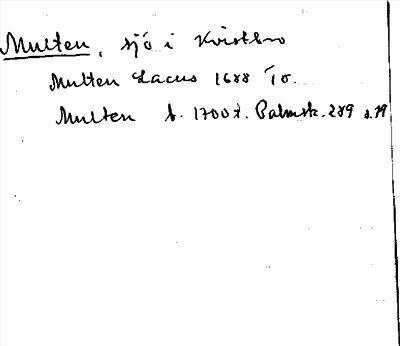 Multen, sjö i Kvistbro
Multen Lacus 1688 To.
Multen b. 1700t. Palmsk. 289 s. 79